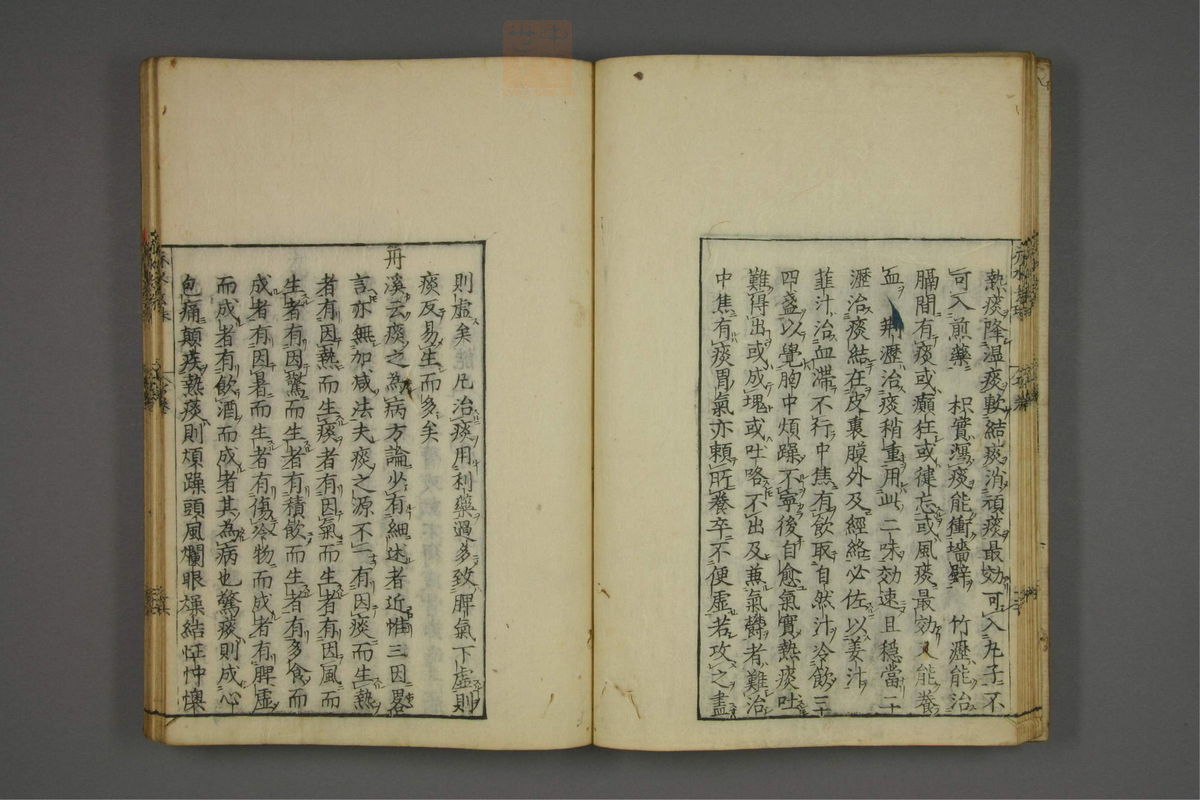 熱痰降温痰軟結痰消頑痰最効可入丸子不
可入煎藥　枳實瀉痰能衝墻壁　竹瀝能治
膈間有痰或癲狂或健忘或風痰最効又能養
血　荆瀝治痰稍重用此二味効速且穩當二十
瀝治痰結在皮裏膜外及經絡必佐以姜汁
韮汁治血滯不行中焦有飲取自然汁冷飲三
四盞以覺胸中煩躁不寧後自愈氣實熱痰吐
難得出或成塊或吐咯不出及兼氣欝者難治
中焦有痰胃氣亦賴所養卒不便虛若攻之盡
則虛矣　凢治痰用利藥過多致脾氣下虛則
痰反易生而多矣
丹溪云痰之為病方論少有細述者近惟三因畧
言亦無加减法夫痰之源不一有因痰而生熱
者有因熱而生痰者有因氣而生者有因風而
生者有因驚而生者有積飲而生者有多食而
成者有因暑而生者有傷冷物而成者有脾虛
而成者有飲酒而成者其為病也驚痰則成心
包痛顛疾熱痰則煩躁頭風爛眼燥結怔忡懊